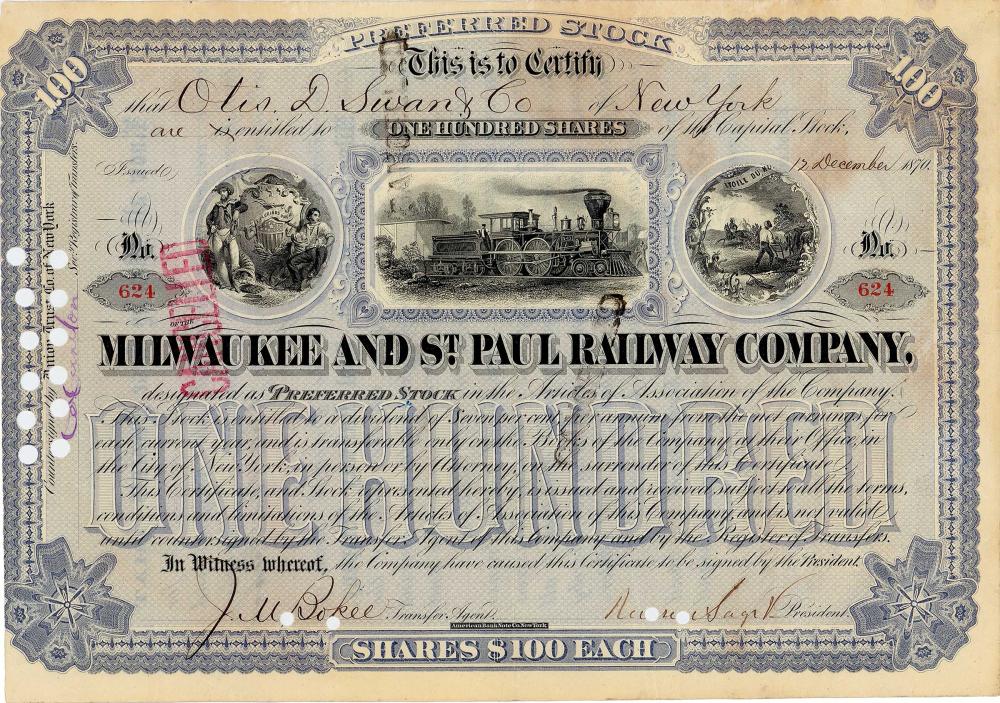 PREFERRED STOCK
100
100
This is to Certify
that Otis. D. Swan & Co of New York
are is entitled to ONE HUNDRED SHARES of the Capital Stock,
Issued 12 December 1870.
ETOILE DU
No.
No.
624
624
CANCELLED
OF THE
MILWAUKEE AND ST. PAUL RAILWAY COMPANY,
designated as PREFERRED STOCK in the Articles of Association of the Company.
This Stock is entitled to a dividend of Seven per cent per annum from the net earnings for
each current year, and is transferable only on the Books of the Company at their Office, in
the City of New York, in person or by Attorney, on the surrender of this Certificate.
This Certificate, and Stock represented hereby, is issued and received subject to all the terms,
conditions and limitations of the Articles of Association of this Company, and is not valid
until countersigned by the Transfer Agent of this Company and by the Register of Transfers.
ONE HUNDRED
In Witness whereof, the Company have caused this Certificate to be signed by the President.
J. M. Bokee Transfer Agent.
Russell Sage President
American Bank Note Co. New York
SHARES $100 EACH
Countersigned by Union Trust Co. of New York
Registrar of Transfers.